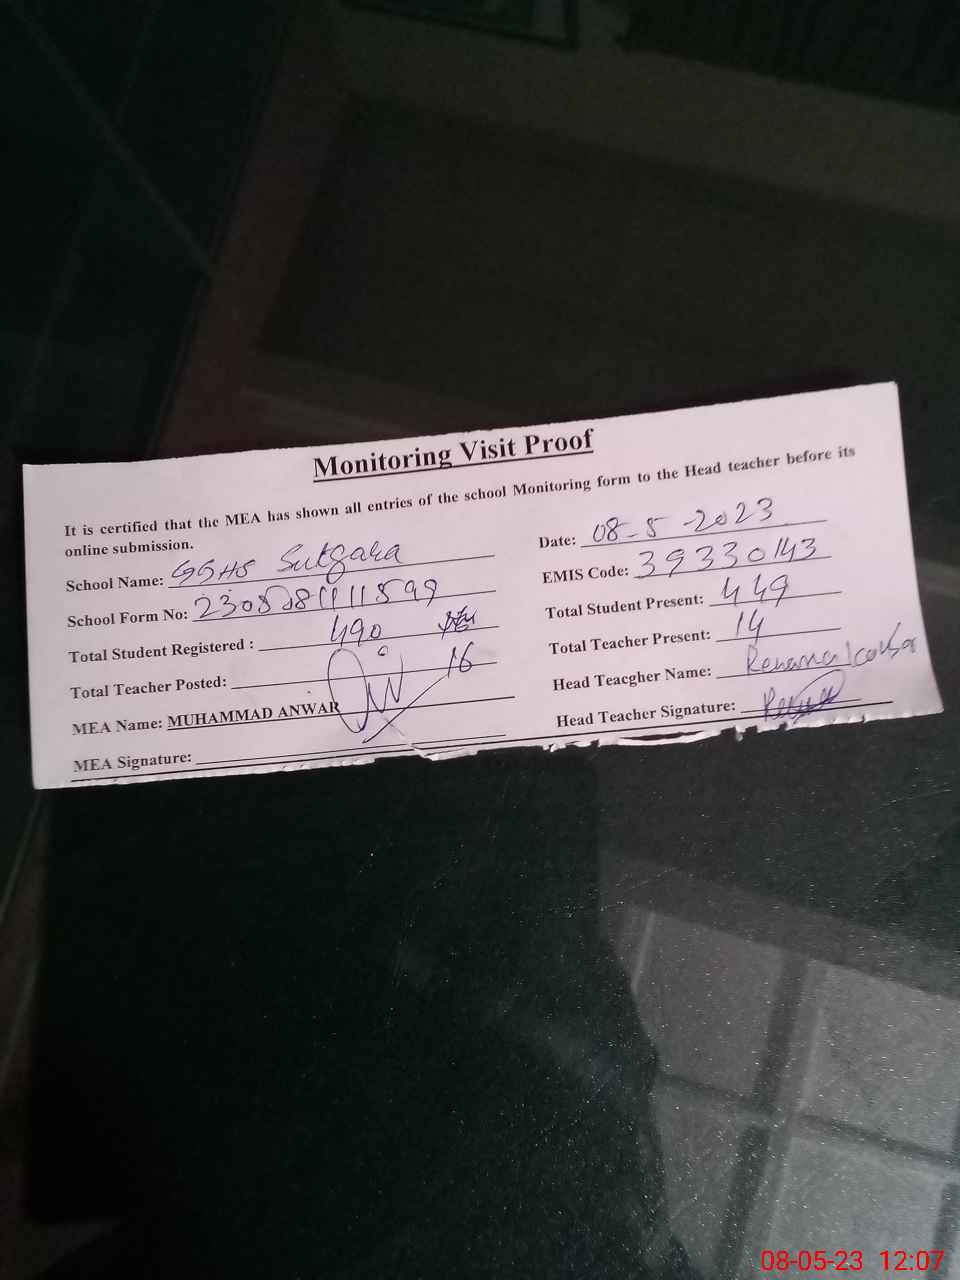 Monitoring Visit Proof
It is certified that the MEA has shown all entries of the school Monitoring form to the Head teacher before its
online submission.
School Name: GGHS Sutgara
Date: 08-5-2023
School Form No:
EMIS Code: 39330143
Total Student Registered : 490
Total Student Present: 449
Total Teacher Posted: 16
Total Teacher Present: 14
MEA Name: MUHAMMAD ANWAR
Head Teacgher Name:
MEA Signature:
Head Teacher Signature:
08-05-23 12:07